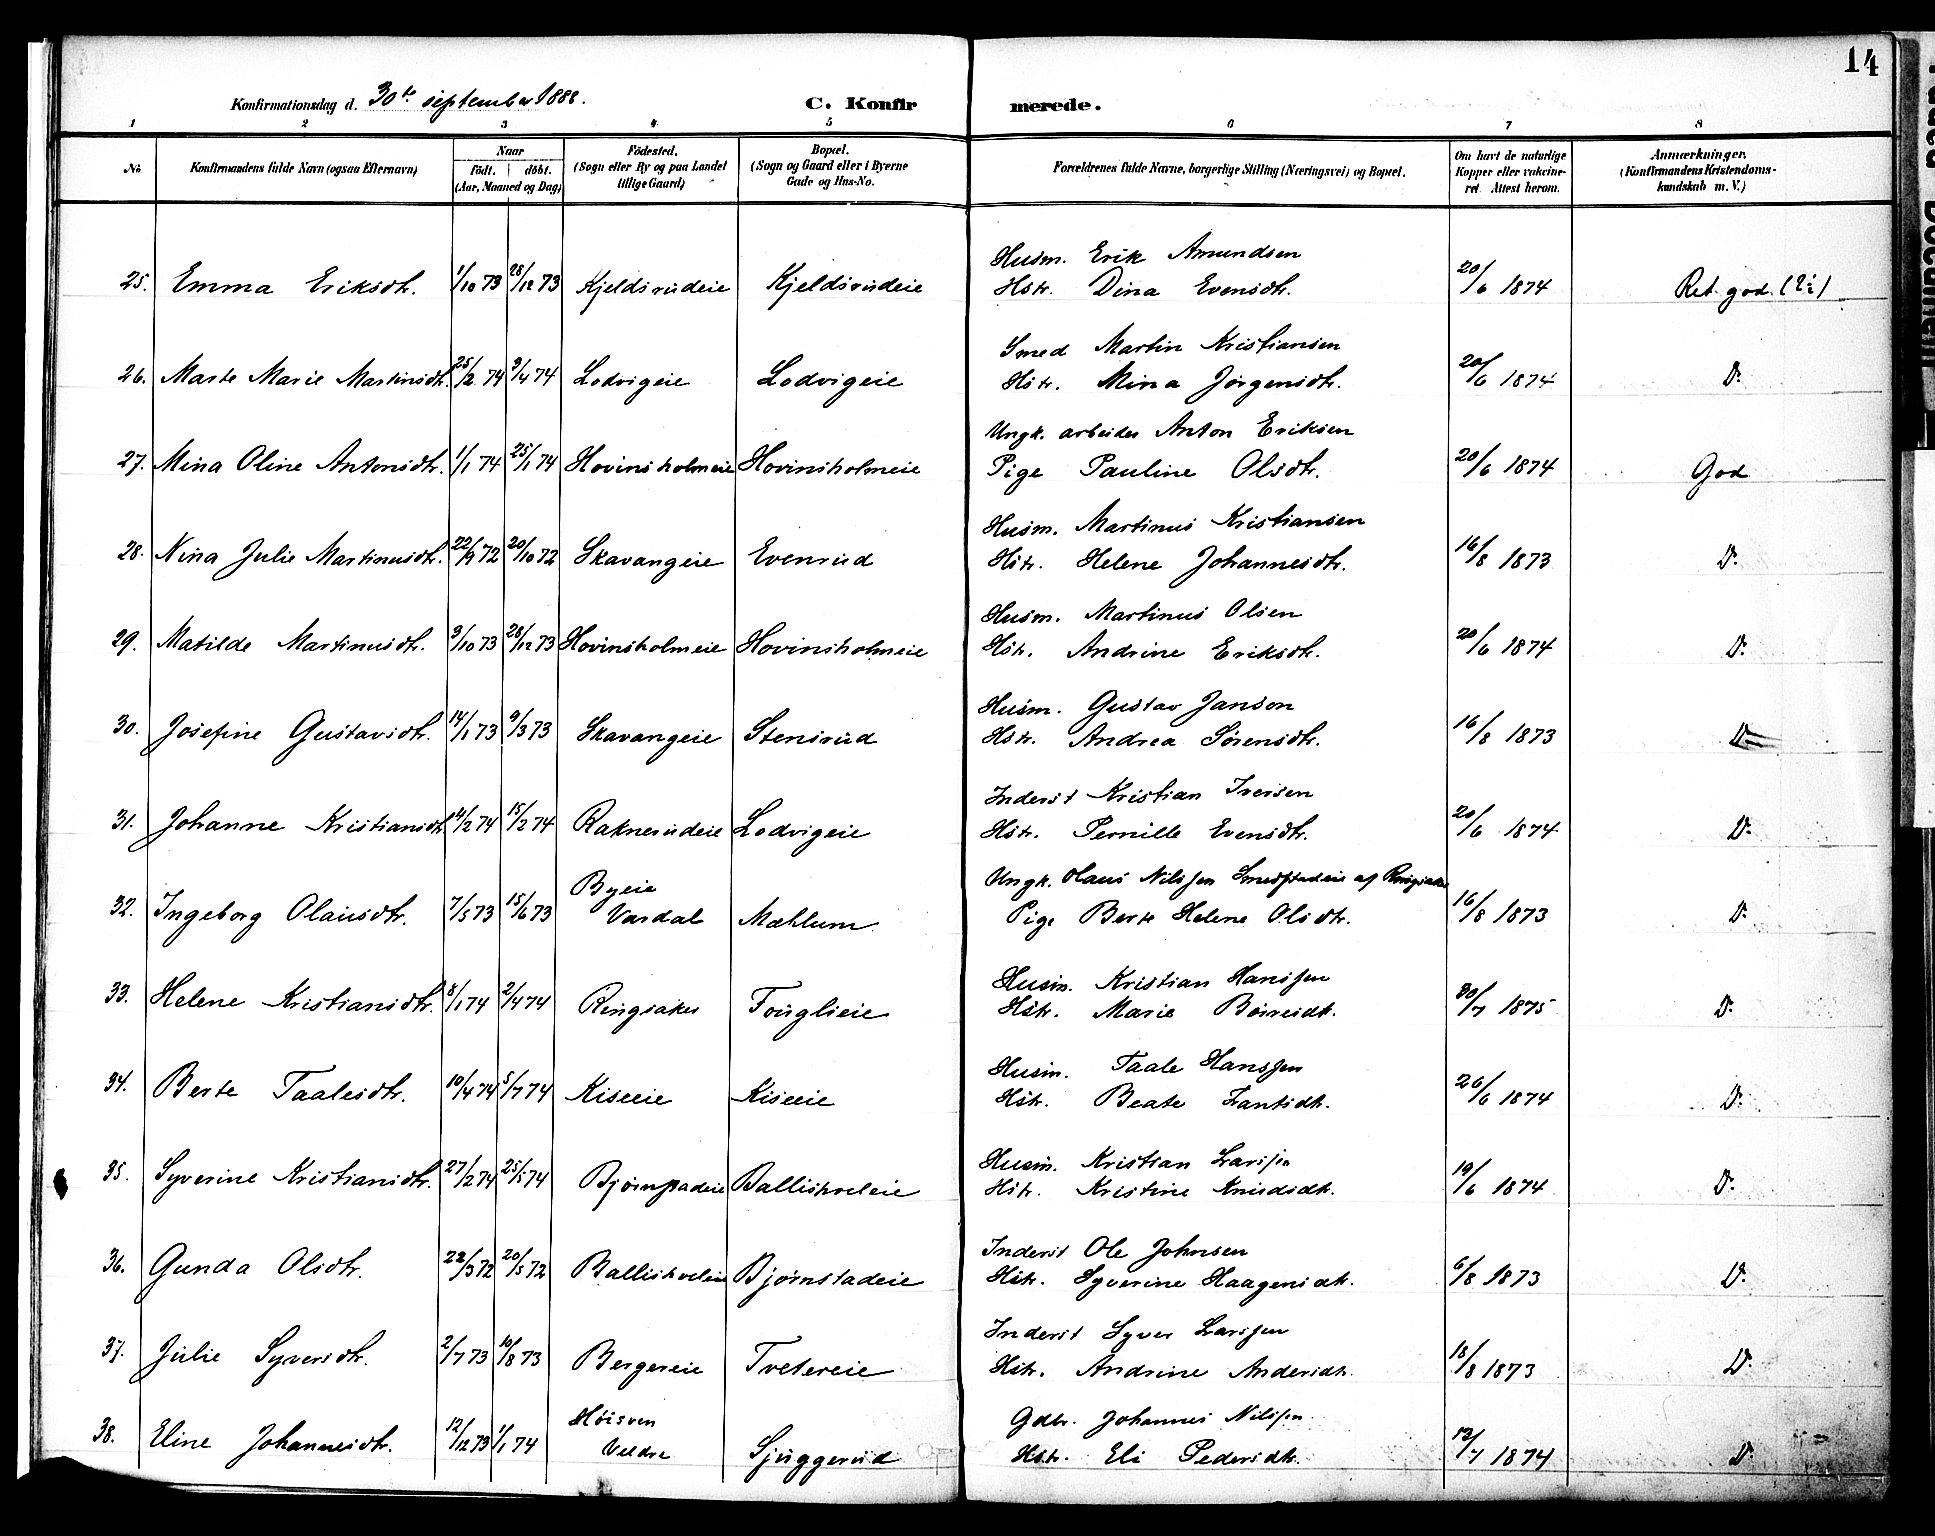 14
Konfirmationsdag d. 30te september 1888.
C. Konfirmerede.
1 2 3 4 5 6 7 8
No. Konfirmandens fulde Navn (ogsaa Efternavn) Naar født. døbt. (Aar, Maaned og Dag) Fødested. (Sogn eller By og paa Landet tillige Gaard) Bopæl. (Sogn og Gaard eller i Byerne Gade og Hus-No. Forældrenes fulde Navne, borgerlige Stilling (Næringsvei) og Bopæl. Om havt de naturlige Kopper eller vaccineret. Attest herom. Anmærkninger. (Konfirmandens Kristendomskundskab m. V.)
Husm. Erik Amundsen
25. Emma Eriksdtr. 1/10 73 28/12 73 Kjeldsrudeie Kjeldsrudeie Hstr. Dina Evensdtr. 20/6 1874 Ret god.
Smed Martin Kristiansen
26. Marte Marie Martinsdtr. 25/2 74 9/4 74 Lodvigeie Lodvigeie Hstr. Mina Jørgensdtr. 20/6 1874 Do
Ungk. arbeider Anton Eriksen
27. Mina Oline Antonsdtr. 1/1 74 25/1 74 Hovinsholmeie Hovinsholmeie Pige Pauline Olsdtr. 20/6 1874 God
Husm. Martinus Kristiansen
28. Nina Julie Martinusdtr. 22/9 72 20/10 72 Skavangeie Evenrud Hstr. Helene Johannesdtr. 16/8 1873 Do
Husm. Martinus Olsen
29. Matilde Martinusdtr. 9/10 73 28/12 73 Hovinsholmeie Hovinsholmeie Hstr. Andrine Eriksdtr. 20/6 1874 Do
Husm. Gustav Janson
30. Josefine Gustavsdtr. 14/1 73 9/3 73 Skavangeie Stensrud Hstr. Andrea Sørensdtr. 16/8 1873 Do
Inderst Kristian Iversen
31. Johanne Kristiansdtr. 11/2 74 15/2 74 Raknerudeie Lodvigeie Hstr. Pernille Evensdtr. 20/6 1874 Do
Byeie Ungk. Olaus Nilssen Smedstadeie af Ringsaker
32. Ingeborg Olausdtr. 7/5 73 15/6 73 Vardal Mæhlum Pige Berte Helene Olsdtr. 16/8 1873 Do
Husm. Kristian Hanssen
33. Helene Kristiansdtr. 8/1 74 2/4 74 Ringsaker Fouglieie Hstr. Marie Børresdtr. 30/7 1875 Do
Husm. Taale Hanssen
34. Berte Taalesdtr. 10/4 74 5/7 74 Kiseeie Kiseeie Hstr. Beate Lantsdtr. 26/6 1874 Do
Husm. Kristian Larssen
35. Syverine Kristiansdtr. 27/2 74 25/5 74 Bjørnstadeie Ballisholeie Hstr. Kristine Knudsdtr. 19/6 1874 Do
Inderst Ole Johnsen
36. Gunda Olsdtr. 22/3 72 20/5 72 Ballishvleie Bjørnstadeie Hstr. Syverine Haagensdtr. 6/8 1873 Do
Inderst Syver Larssen
37. Julie Syversdtr. 2/7 73 10/8 73 Bergereie Tvetereie Hstr. Andrine Andersdtr. 18/8 1873 Do
Høisven Gdbr. Johannes Nilssen
38. Eline Johannesdtr. 12/12 73 1/1 74 Veldre Sjuggerud Hstr. Eli Pedersdtr. 12/7 1874 Do